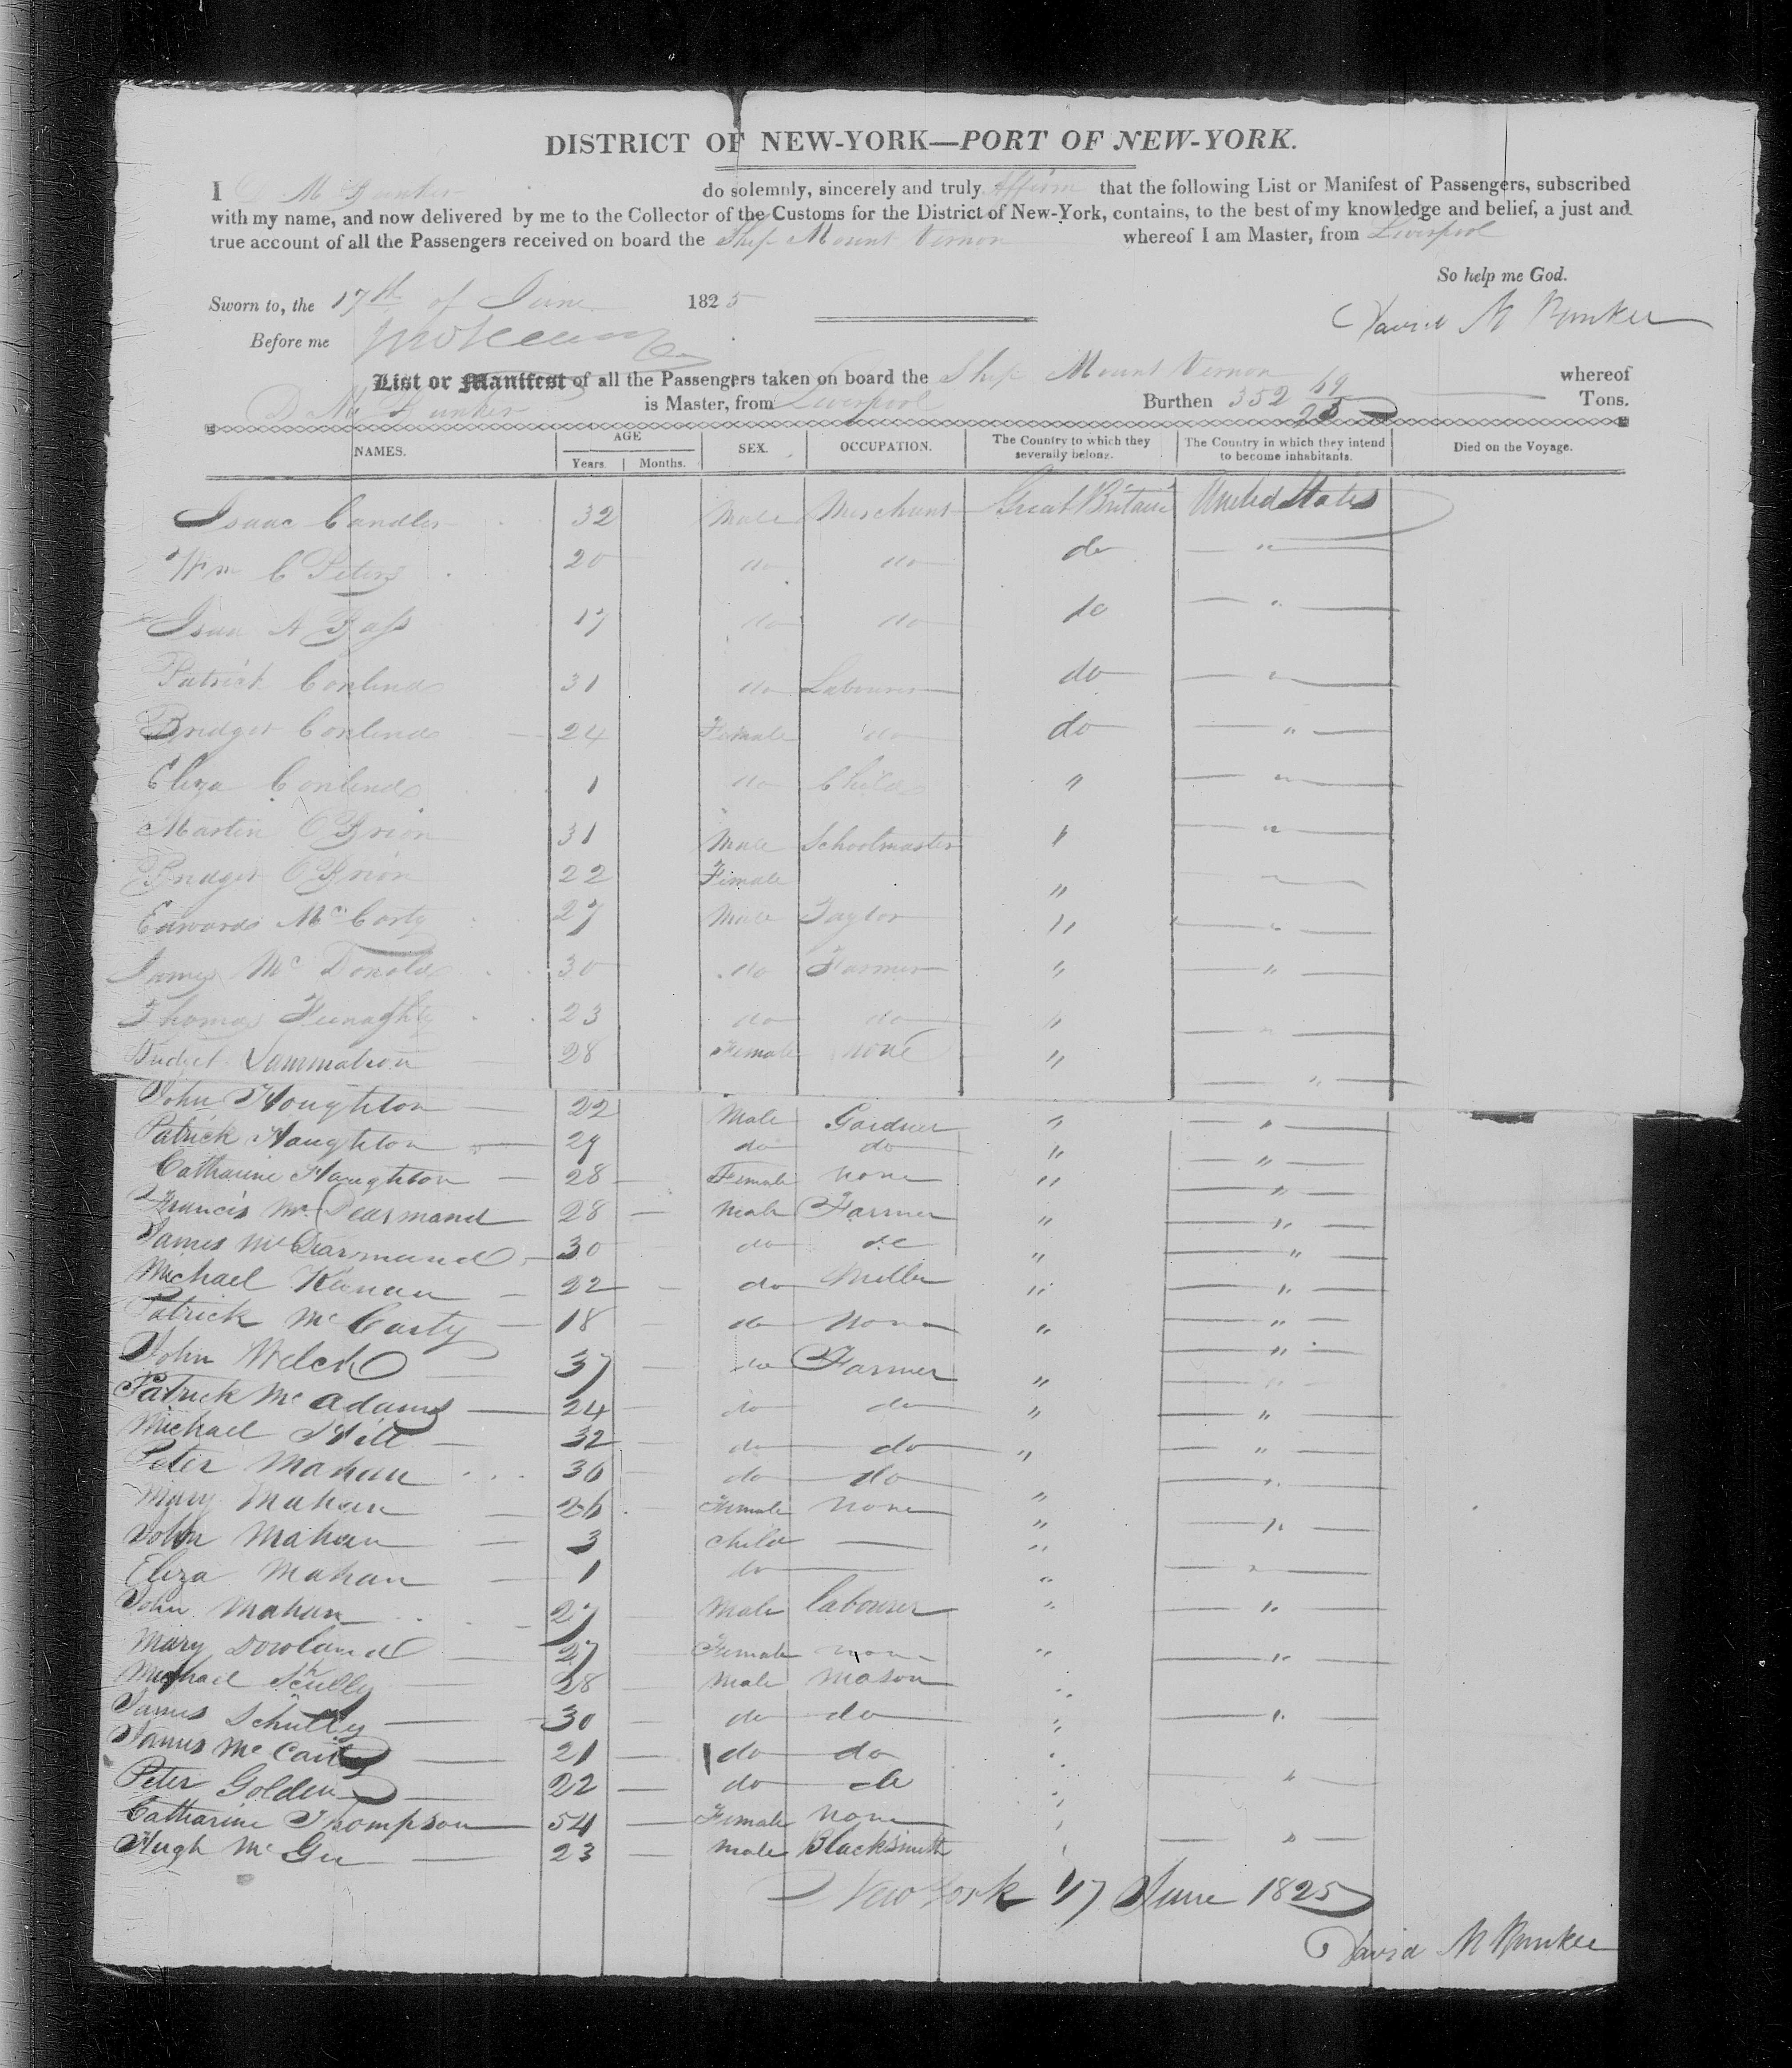 DISTRICT OF NEW-YORK—PORT OF NEW-YORK.
I D M Bunker do solemnly, sincerely and truly Affirm that the following List or Manifest of Passengers, subscribed
with my name, and now delivered by me to the Collector of the Customs for the District of New-York, contains, to the best of my knowledge and belief, a just and
true account of all the Passengers received on board the Ship Mount Vernon whereof I am Master, from Liverpool
So help me God.
Sworn to, the 17th of June 1825
David M Bunker
Before me
List or Manifest of all the Passengers taken on board the Ship Mount Vernon whereof
D M Bunker is Master, from Liverpool Burthen 352 Tons.
NAMES. AGE Years. Months. SEX. OCCUPATION. The Country to which they severally belong. The Country in which they intend to become inhabitants. Died on the Voyage.
Isaac Candler 32 Male Merchant Great Britain United States
Wm C Peters 20 do do do "
Isaac 17 do do do "
Patrick 31 do Labourer do "
Bridget 24 Female do do "
Eliza 1 do Child " "
Martin O Brion 31 Male Schoolmaster " "
Bridget O Brion 22 Female "
Edward Mc Carty 27 Male Taylor " "
James Mc Donald 30 do Farmer " "
Thomas 23 do do " "
28 Female none " "
John Houghton 22 Male Gardner " "
Patrick Haughton 29 do do " "
Catharine Haughton 28 Female none " "
Francis Mc Dearmand 28 male Farmer " "
James Mc Dearmand 30 do do " "
Michael Keenan 22 do Miller " "
Patrick Mc Carty 18 do None " "
John Welch 37 do Farmer " "
Patrick Mc Adams 24 do do " "
Michael Hill 32 do do " "
Peter Mahan 30 do do "
Mary Mahan 26 Female none " "
John Mahan 3 child "
Eliza Mahan 1 do " "
John Mahan 27 Male labourer " "
Mary Dowland 27 Female none " "
Michael Schully 28 male mason "
James Schully 30 do do " "
James Mc Carty 21 do do "
Peter Golden 22 do do " "
Catharine Thompson 54 Female none "
Hugh Mc Gee 23 male Blacksmith " "
New York 17 June 1825
David M Bunker